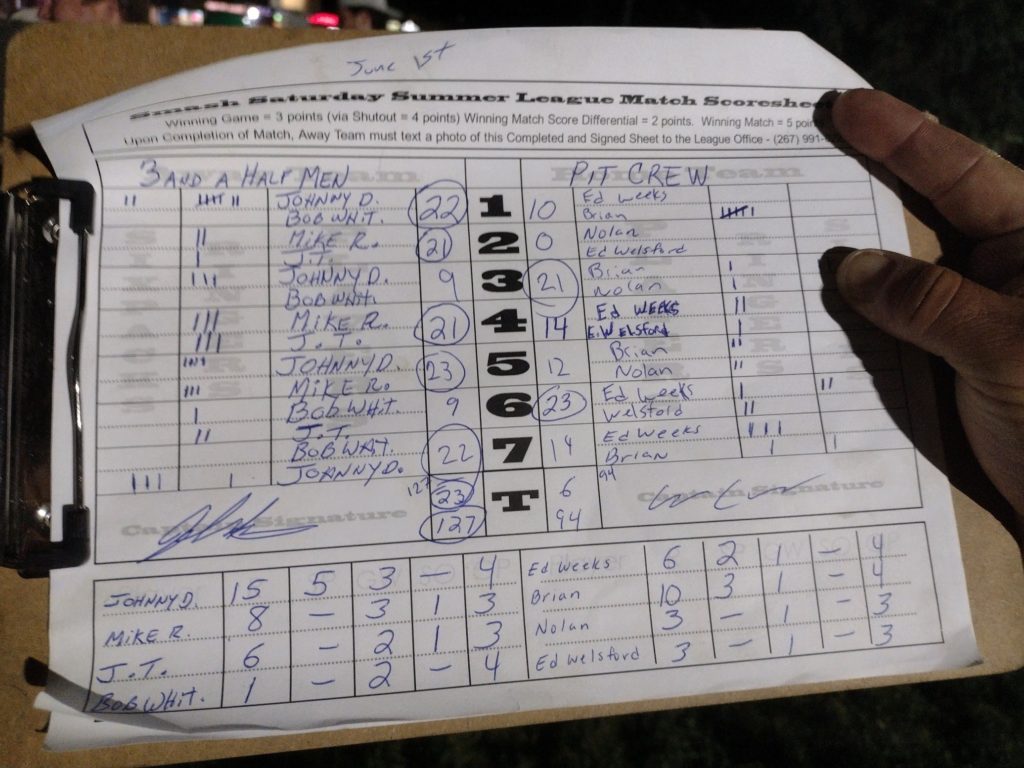 June 1st
Smash Saturday Summer League Match Scoreshe
Winning Game = 3 points (via Shutout = 4 points) Winning Match Score Differential = 2 points. Winning Match = 5 poin
Upon Completion of Match, Away Team must text a photo of this Completed and Signed Sheet to the League Office - (267) 991-
3 AND A HALF MEN PIT CREW
JOHNNY D. 22 1 10 Ed weeks
BOB WHIT. Brian
MIKE R. 21 2 0 Nolan
J.T. Ed Welsford
JOHNNY D. 9 3 21 Brian
BOB WHIT. Nolan
MIKE R. 21 4 14 Ed WEEKS
J.T. E.WELSFORD
JOHNNY D. 23 5 12 Brian
MIKE R. Nolan
BOB WHIT. 9 6 23 Ed weeks
J.T. Welsford
BOB WHIT. 22 7 14 Ed Weeks
JOHNNY D. Brian
127 23 T 6 94
127 94
Captain Signature Captain Signature
JOHNNY D. 15 5 3 – 4 Ed Weeks 6 2 1 – 4
MIKE R. 8 – 3 1 3 Brian 10 3 1 – 4
J.T. 6 – 2 1 3 Nolan 3 – 1 – 3
BOB WHIT. 1 – 2 – 4 Ed Welsford 3 – 1 – 3